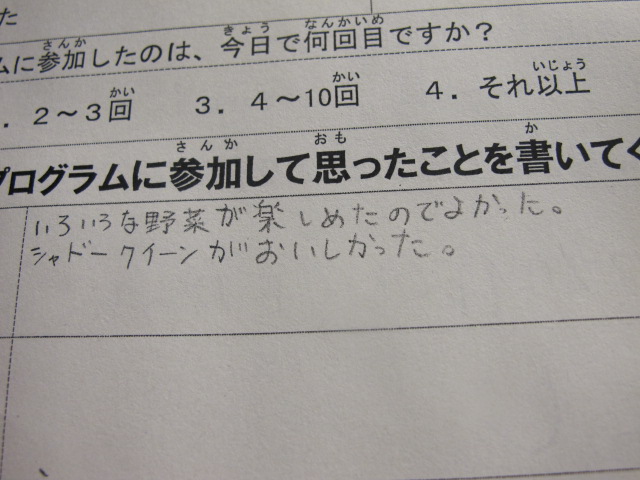 た
ムに参加したのは、今日で何回目ですか？
さんか きょう なんかいめ
．２～３回 ３．４～10回 ４．それ以上
かい かい いじょう
プログラムに参加して思ったことを書いてく
さんか おも か
いろいろな野菜が楽しめたのでよかった。
シャドークイーンがおいしかった。